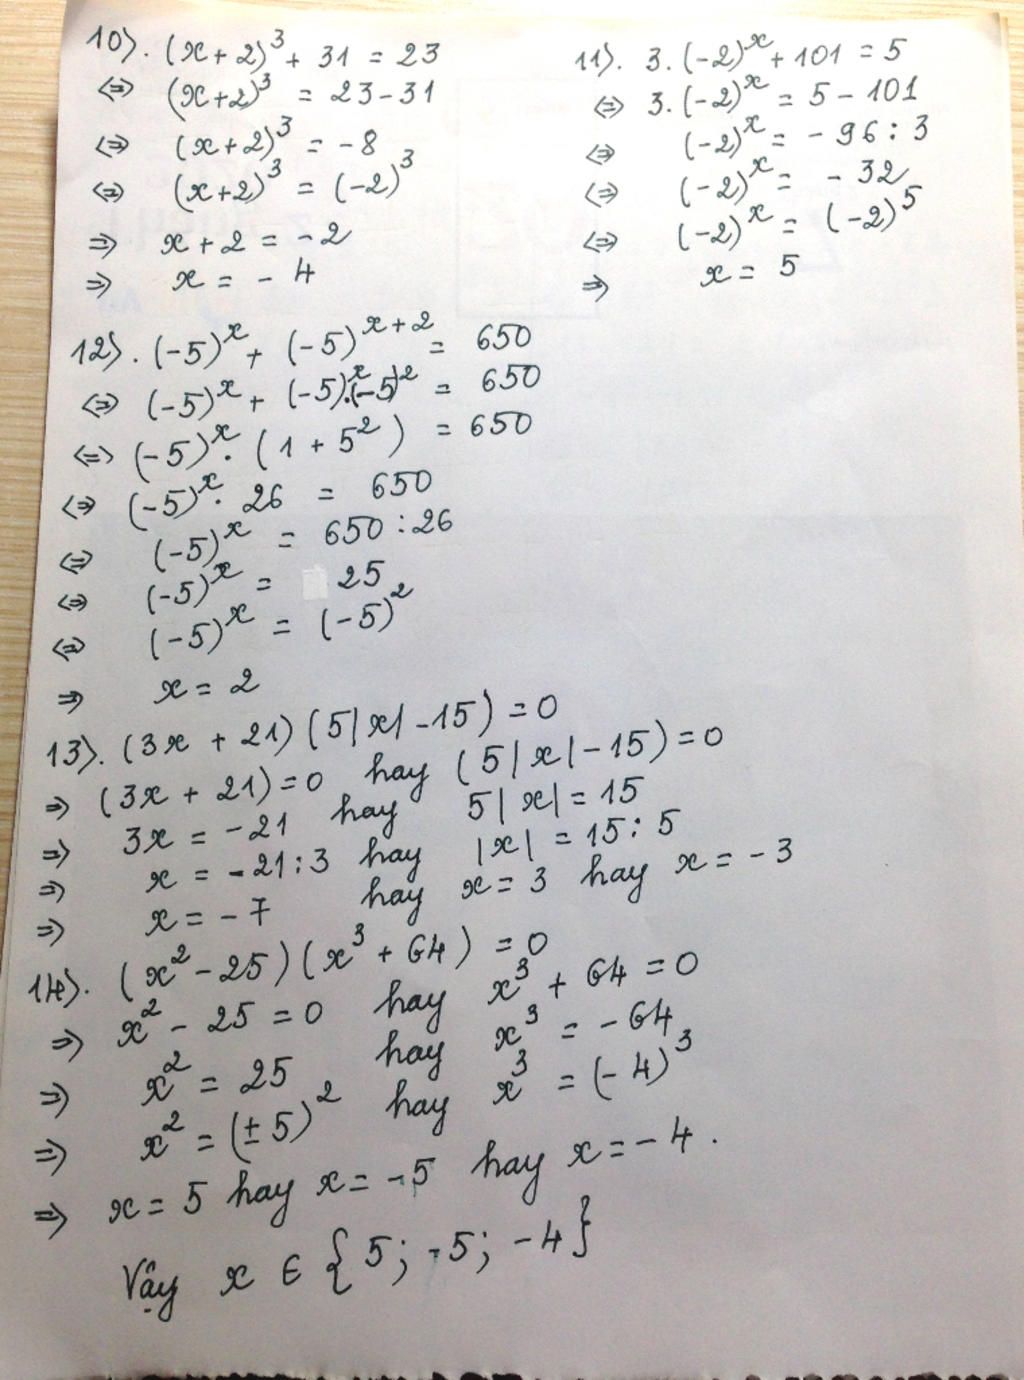 10). (x+2)³ + 31 = 23
⇔ (x+2)³ = 23-31
⇔ (x+2)³ = -8
⇔ (x+2)³ = (-2)³
⇒ x+2 = -2
⇒ x = - 4
11). 3.(-2)ˣ + 101 = 5
⇔ 3.(-2)ˣ = 5 - 101
⇔ (-2)ˣ = - 96 : 3
⇔ (-2)ˣ = - 32
⇔ (-2)ˣ = (-2)⁵
⇒ x = 5
12). (-5)ˣ + (-5)ˣ⁺² = 650
⇔ (-5)ˣ + (-5)ˣ.(-5)² = 650
⇔ (-5)ˣ . (1 + 5²) = 650
⇔ (-5)ˣ . 26 = 650
⇔ (-5)ˣ = 650 : 26
⇔ (-5)ˣ = 25
⇔ (-5)ˣ = (-5)²
⇒ x = 2
13). (3x + 21) (5|x| - 15) = 0
⇒ (3x + 21) = 0 hay (5|x| - 15) = 0
⇒ 3x = -21 hay 5|x| = 15
⇒ x = -21 : 3 hay |x| = 15 : 5
⇒ x = - 7 hay x = 3 hay x = - 3
14). (x² - 25) (x³ + 64) = 0
⇒ x² - 25 = 0 hay x³ + 64 = 0
⇒ x² = 25 hay x³ = - 64
⇒ x² = (± 5)² hay x³ = (- 4)³
⇒ x = 5 hay x = -5 hay x = - 4 .
Vậy x ∈ {5; -5; -4}